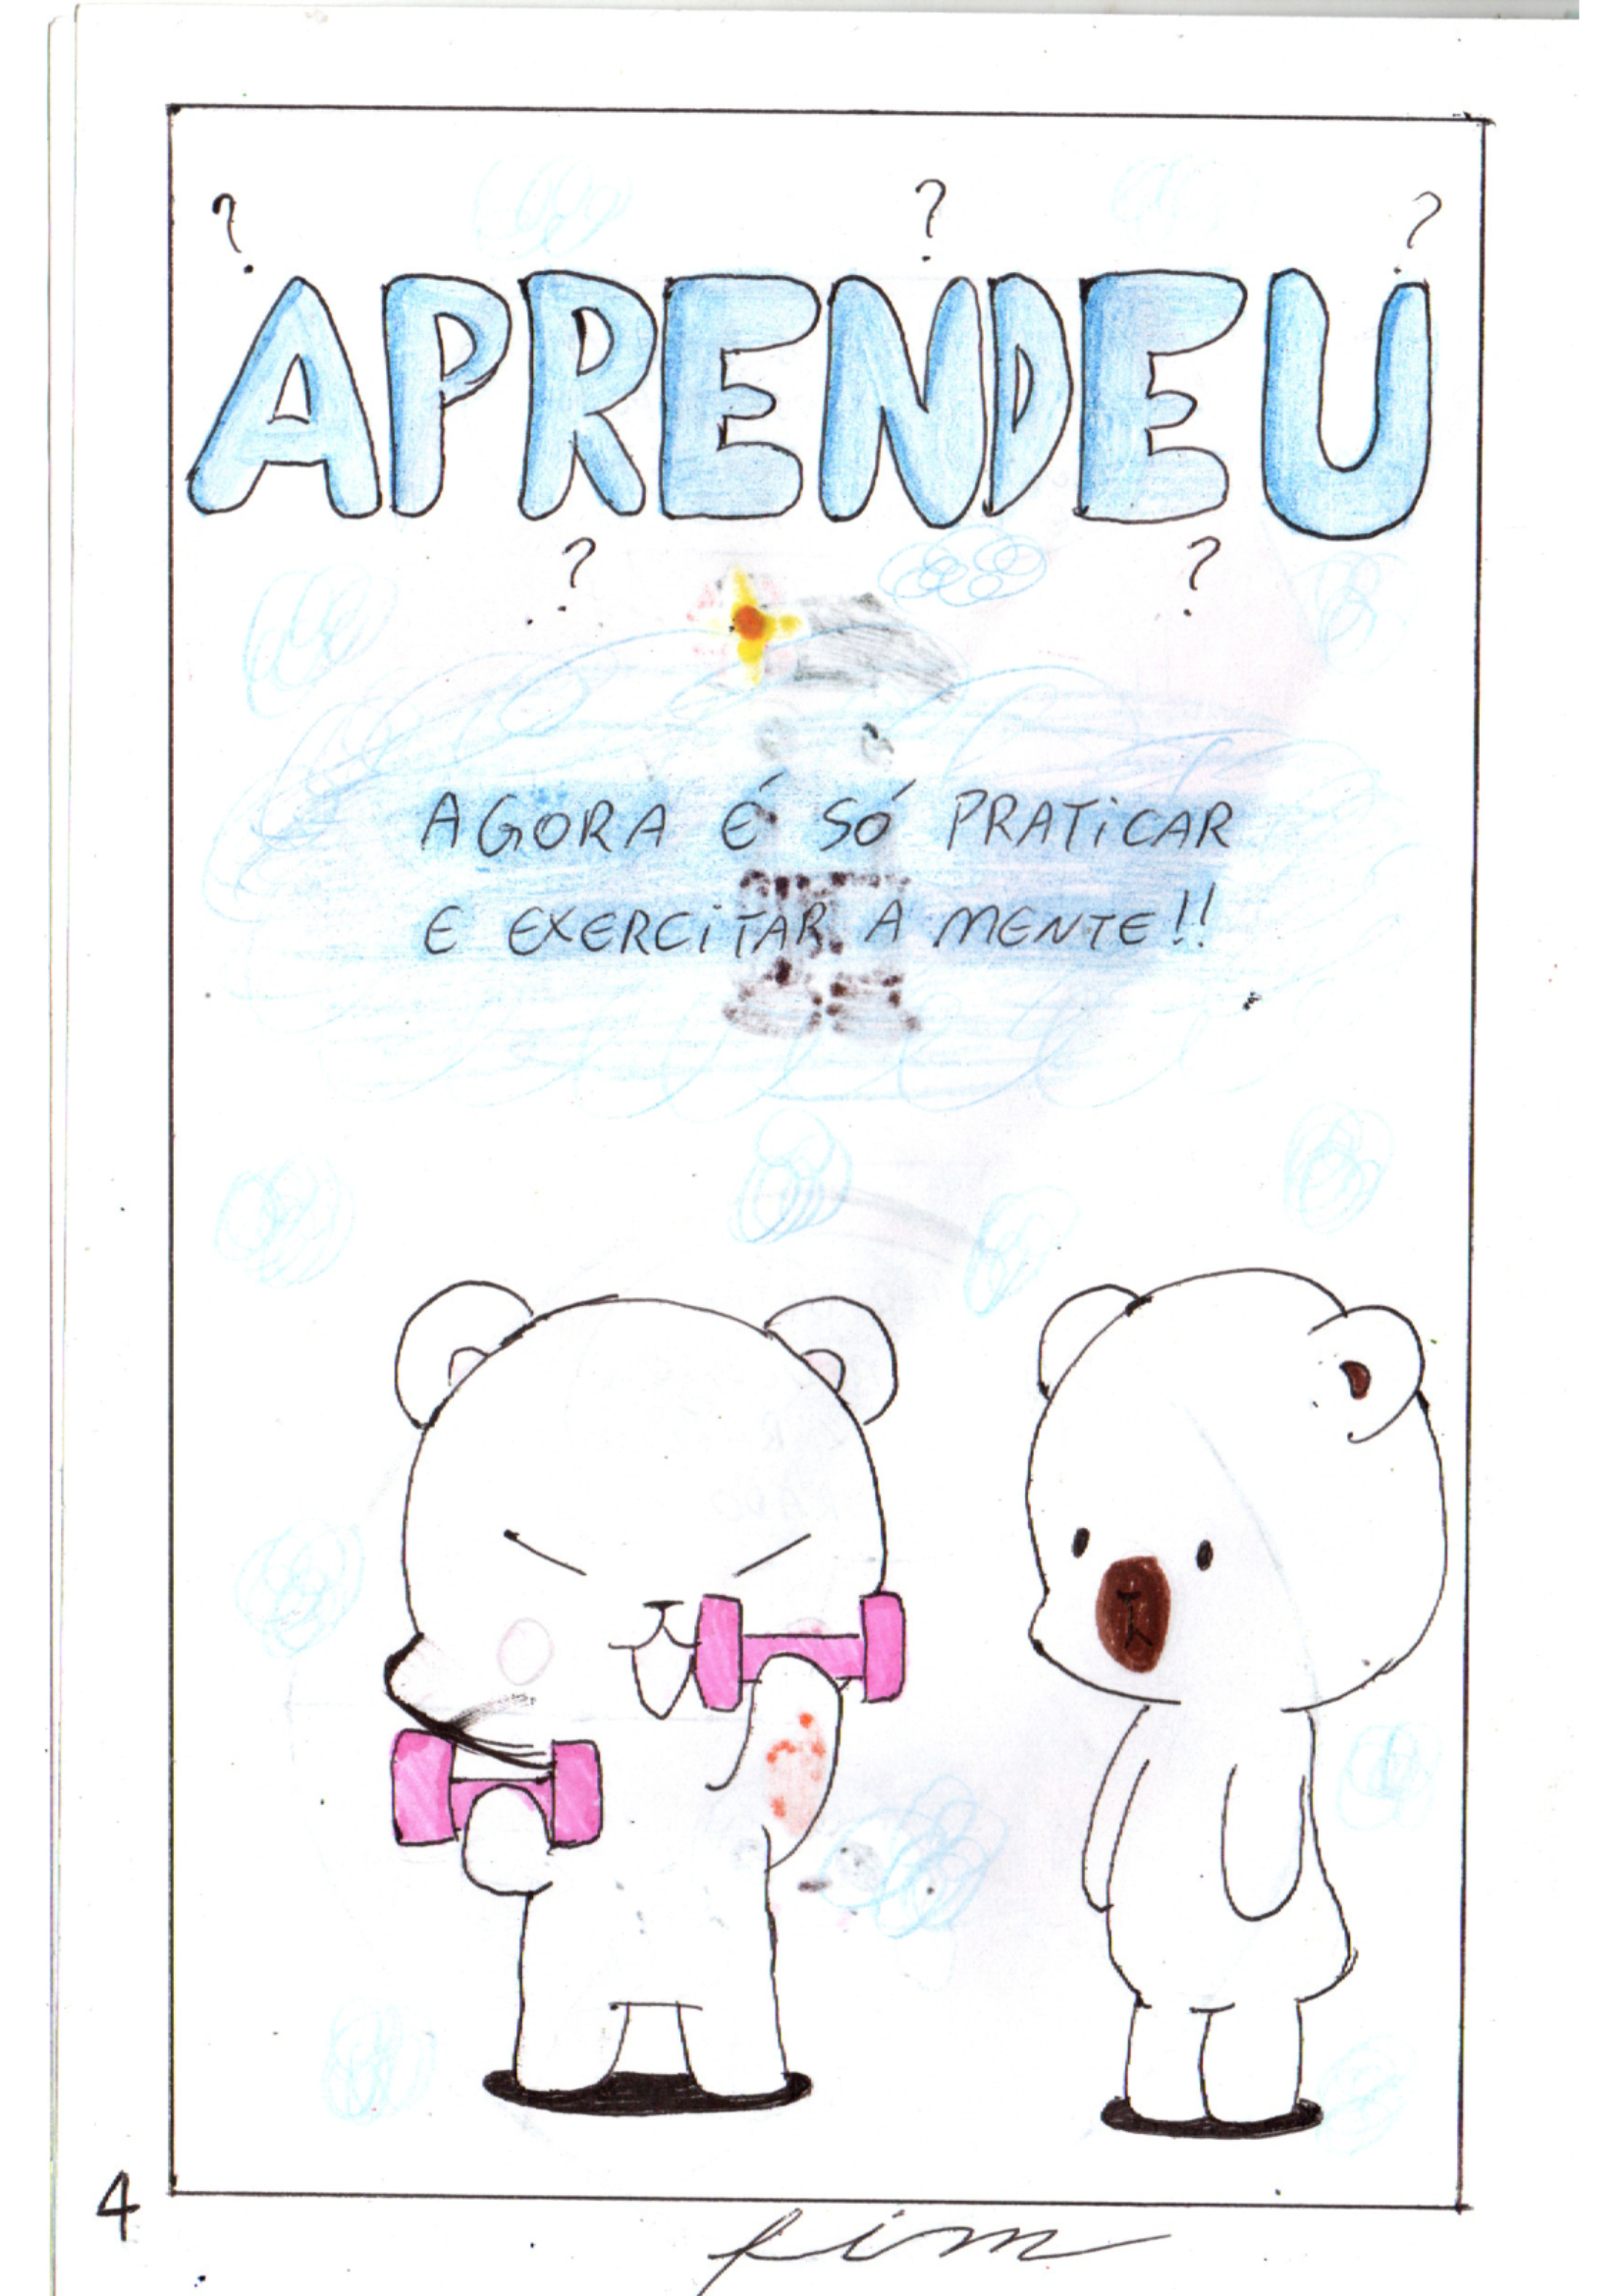 ? ? ?
APRENDEU
? ?
AGORA É SÓ PRATICAR
E EXERCITAR A MENTE!!
4
fim